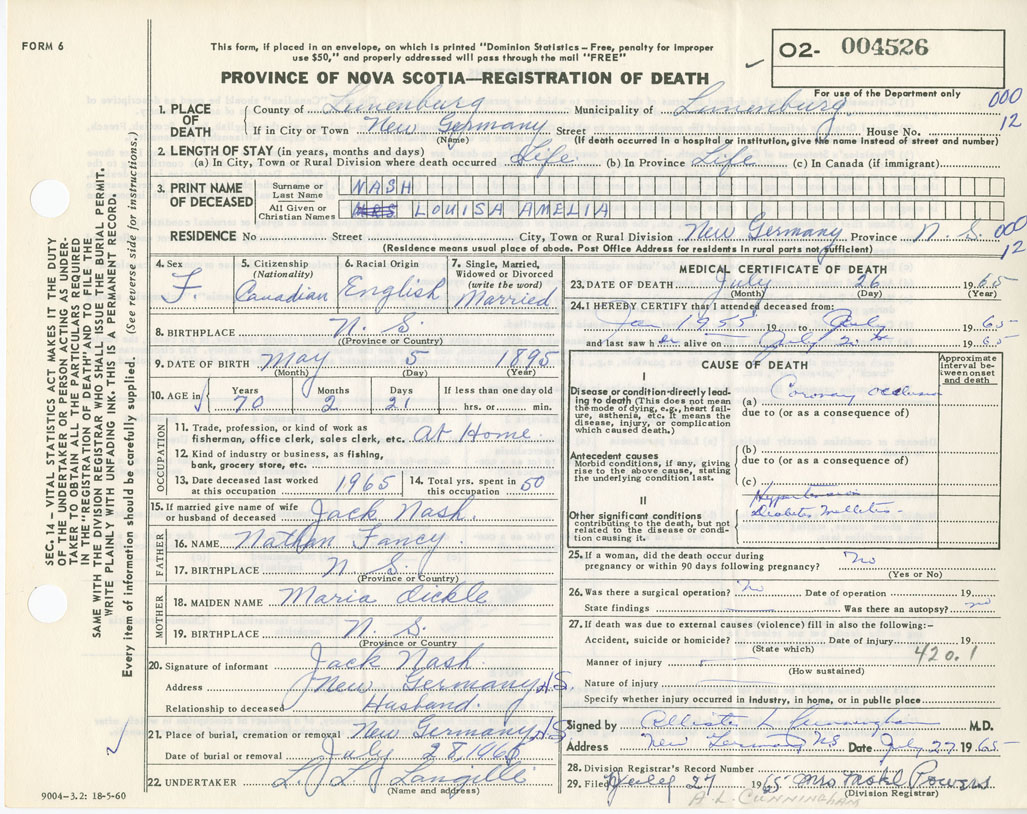 FORM 6
This form, if placed in an envelope, on which is printed "Dominion Statistics – Free, penalty for improper
use $50," and properly addressed will pass through the mail "FREE"
02- 004526
PROVINCE OF NOVA SCOTIA—REGISTRATION OF DEATH
For use of the Department only
000
12
1. PLACE OF DEATH County of Lunenburg Municipality of Lunenburg
If in City or Town New Germany Street House No.
(Name) (If death occurred in a hospital or institution, give the name instead of street and number)
2. LENGTH OF STAY (in years, months and days)
(a) In City, Town or Rural Division where death occurred Life (b) In Province Life (c) In Canada (if immigrant)
3. PRINT NAME OF DECEASED
Surname or Last Name NASH
All Given or Christian Names LOUISA AMELIA
RESIDENCE No Street City, Town or Rural Division New Germany Province N. S. 000
12
(Residence means usual place of abode. Post Office Address for residents in rural parts not sufficient)
4. Sex F.
5. Citizenship (Nationality) Canadian
6. Racial Origin English
7. Single, Married, Widowed or Divorced (write the word) Married
8. BIRTHPLACE N. S.
(Province or Country)
9. DATE OF BIRTH May 5 1895
(Month) (Day) (Year)
10. AGE in Years Months Days If less than one day old
70 2 21 hrs. or min.
OCCUPATION
11. Trade, profession, or kind of work as
fisherman, office clerk, sales clerk, etc. at Home
12. Kind of industry or business, as fishing,
bank, grocery store, etc.
13. Date deceased last worked at this occupation 1965
14. Total yrs. spent in this occupation 50
15. If married give name of wife or husband of deceased Jack Nash.
FATHER
16. NAME Nathan Fancy
17. BIRTHPLACE N S.
(Province or Country)
MOTHER
18. MAIDEN NAME Maria Dickle
19. BIRTHPLACE N. S.
(Province or Country
20. Signature of informant Jack Nash.
Address New Germany N.S.
Relationship to deceased Husband.
21. Place of burial, cremation or removal New Germany N.S.
Date of burial or removal July 28, 1965
22. UNDERTAKER L. L. Langille
(Name and address)
MEDICAL CERTIFICATE OF DEATH
23. DATE OF DEATH July 26 1965
(Month) (Day) (Year)
24. I HEREBY CERTIFY that I attended deceased from:
Jan 1955 19 to July 1965
and last saw her alive on July 1965
CAUSE OF DEATH
Approximate interval between onset and death
I
Disease or condition directly leading to death (This does not mean
the mode of dying, e.g., heart failure, asthenia, etc. It means the
disease, injury, or complication
which caused death.)
(a) Coronary occlusion
due to (or as a consequence of)
Antecedent causes
Morbid conditions, if any, giving
rise to the above cause, stating
the underlying condition last.
(b)
due to (or as a consequence of)
(c)
II
Other significant conditions
contributing to the death, but not
related to the disease or condition causing it.
Hypertension
Diabetes Mellitus -
25. If a woman, did the death occur during
pregnancy or within 90 days following pregnancy? No
(Yes or No)
26. Was there a surgical operation? No Date of operation 19
State findings Was there an autopsy? no
27. If death was due to external causes (violence) fill in also the following:–
Accident, suicide or homicide? Date of injury 19
(State which)
420.1
Manner of injury
(How sustained)
Nature of injury
Specify whether injury occurred in industry, in home, or in public place
Signed by L Cunningham M.D.
Address New Germany NS Date July 27 1965
28. Division Registrar's Record Number
29. Filed July 27 1965 Mrs Powers
(Division Registrar)
B.L. CUNNINGHAM
9004-3.2: 18-5-60
SEC. 14 – VITAL STATISTICS ACT MAKES IT THE DUTY
OF THE UNDERTAKER OR PERSON ACTING AS UNDERTAKER TO OBTAIN ALL THE PARTICULARS REQUIRED
IN THE "REGISTRATION OF DEATH" AND TO FILE THE
SAME WITH THE DIVISION REGISTRAR WHO SHALL ISSUE THE BURIAL PERMIT.
WRITE PLAINLY WITH UNFADING INK. THIS IS A PERMANENT RECORD.
Every item of information should be carefully supplied. (See reverse side for instructions.)